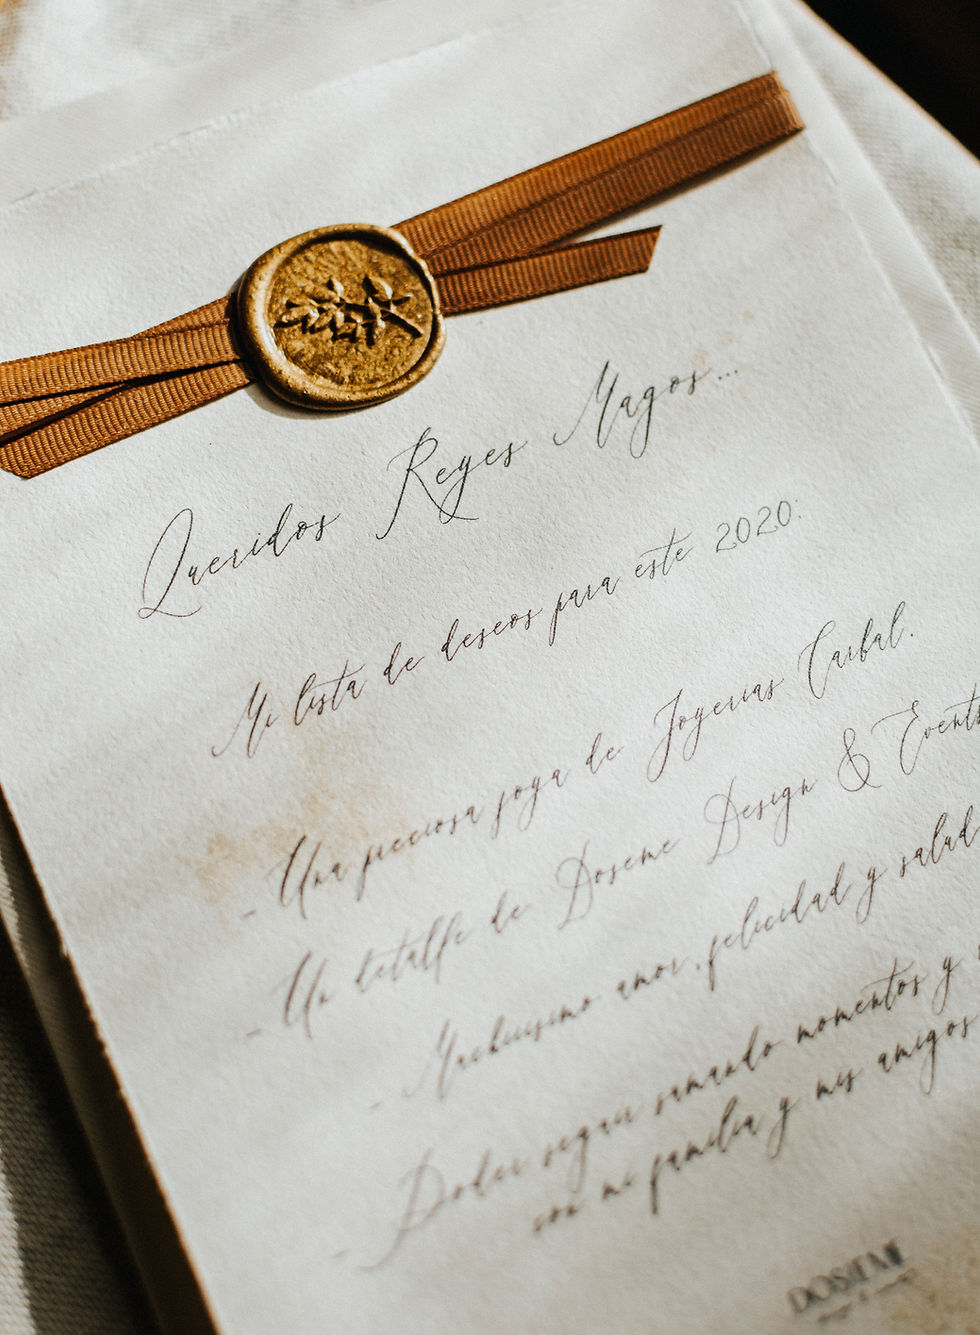 Queridos Reyes Magos...
Mi lista de deseos para este 2020:
- Una preciosa joya de Joyerías Carbal.
- Un detalle de Doseme Design & Event
- Muchísimo amor, felicidad y salud
- Poder seguir sumando momentos y
con mi familia y mis amigos